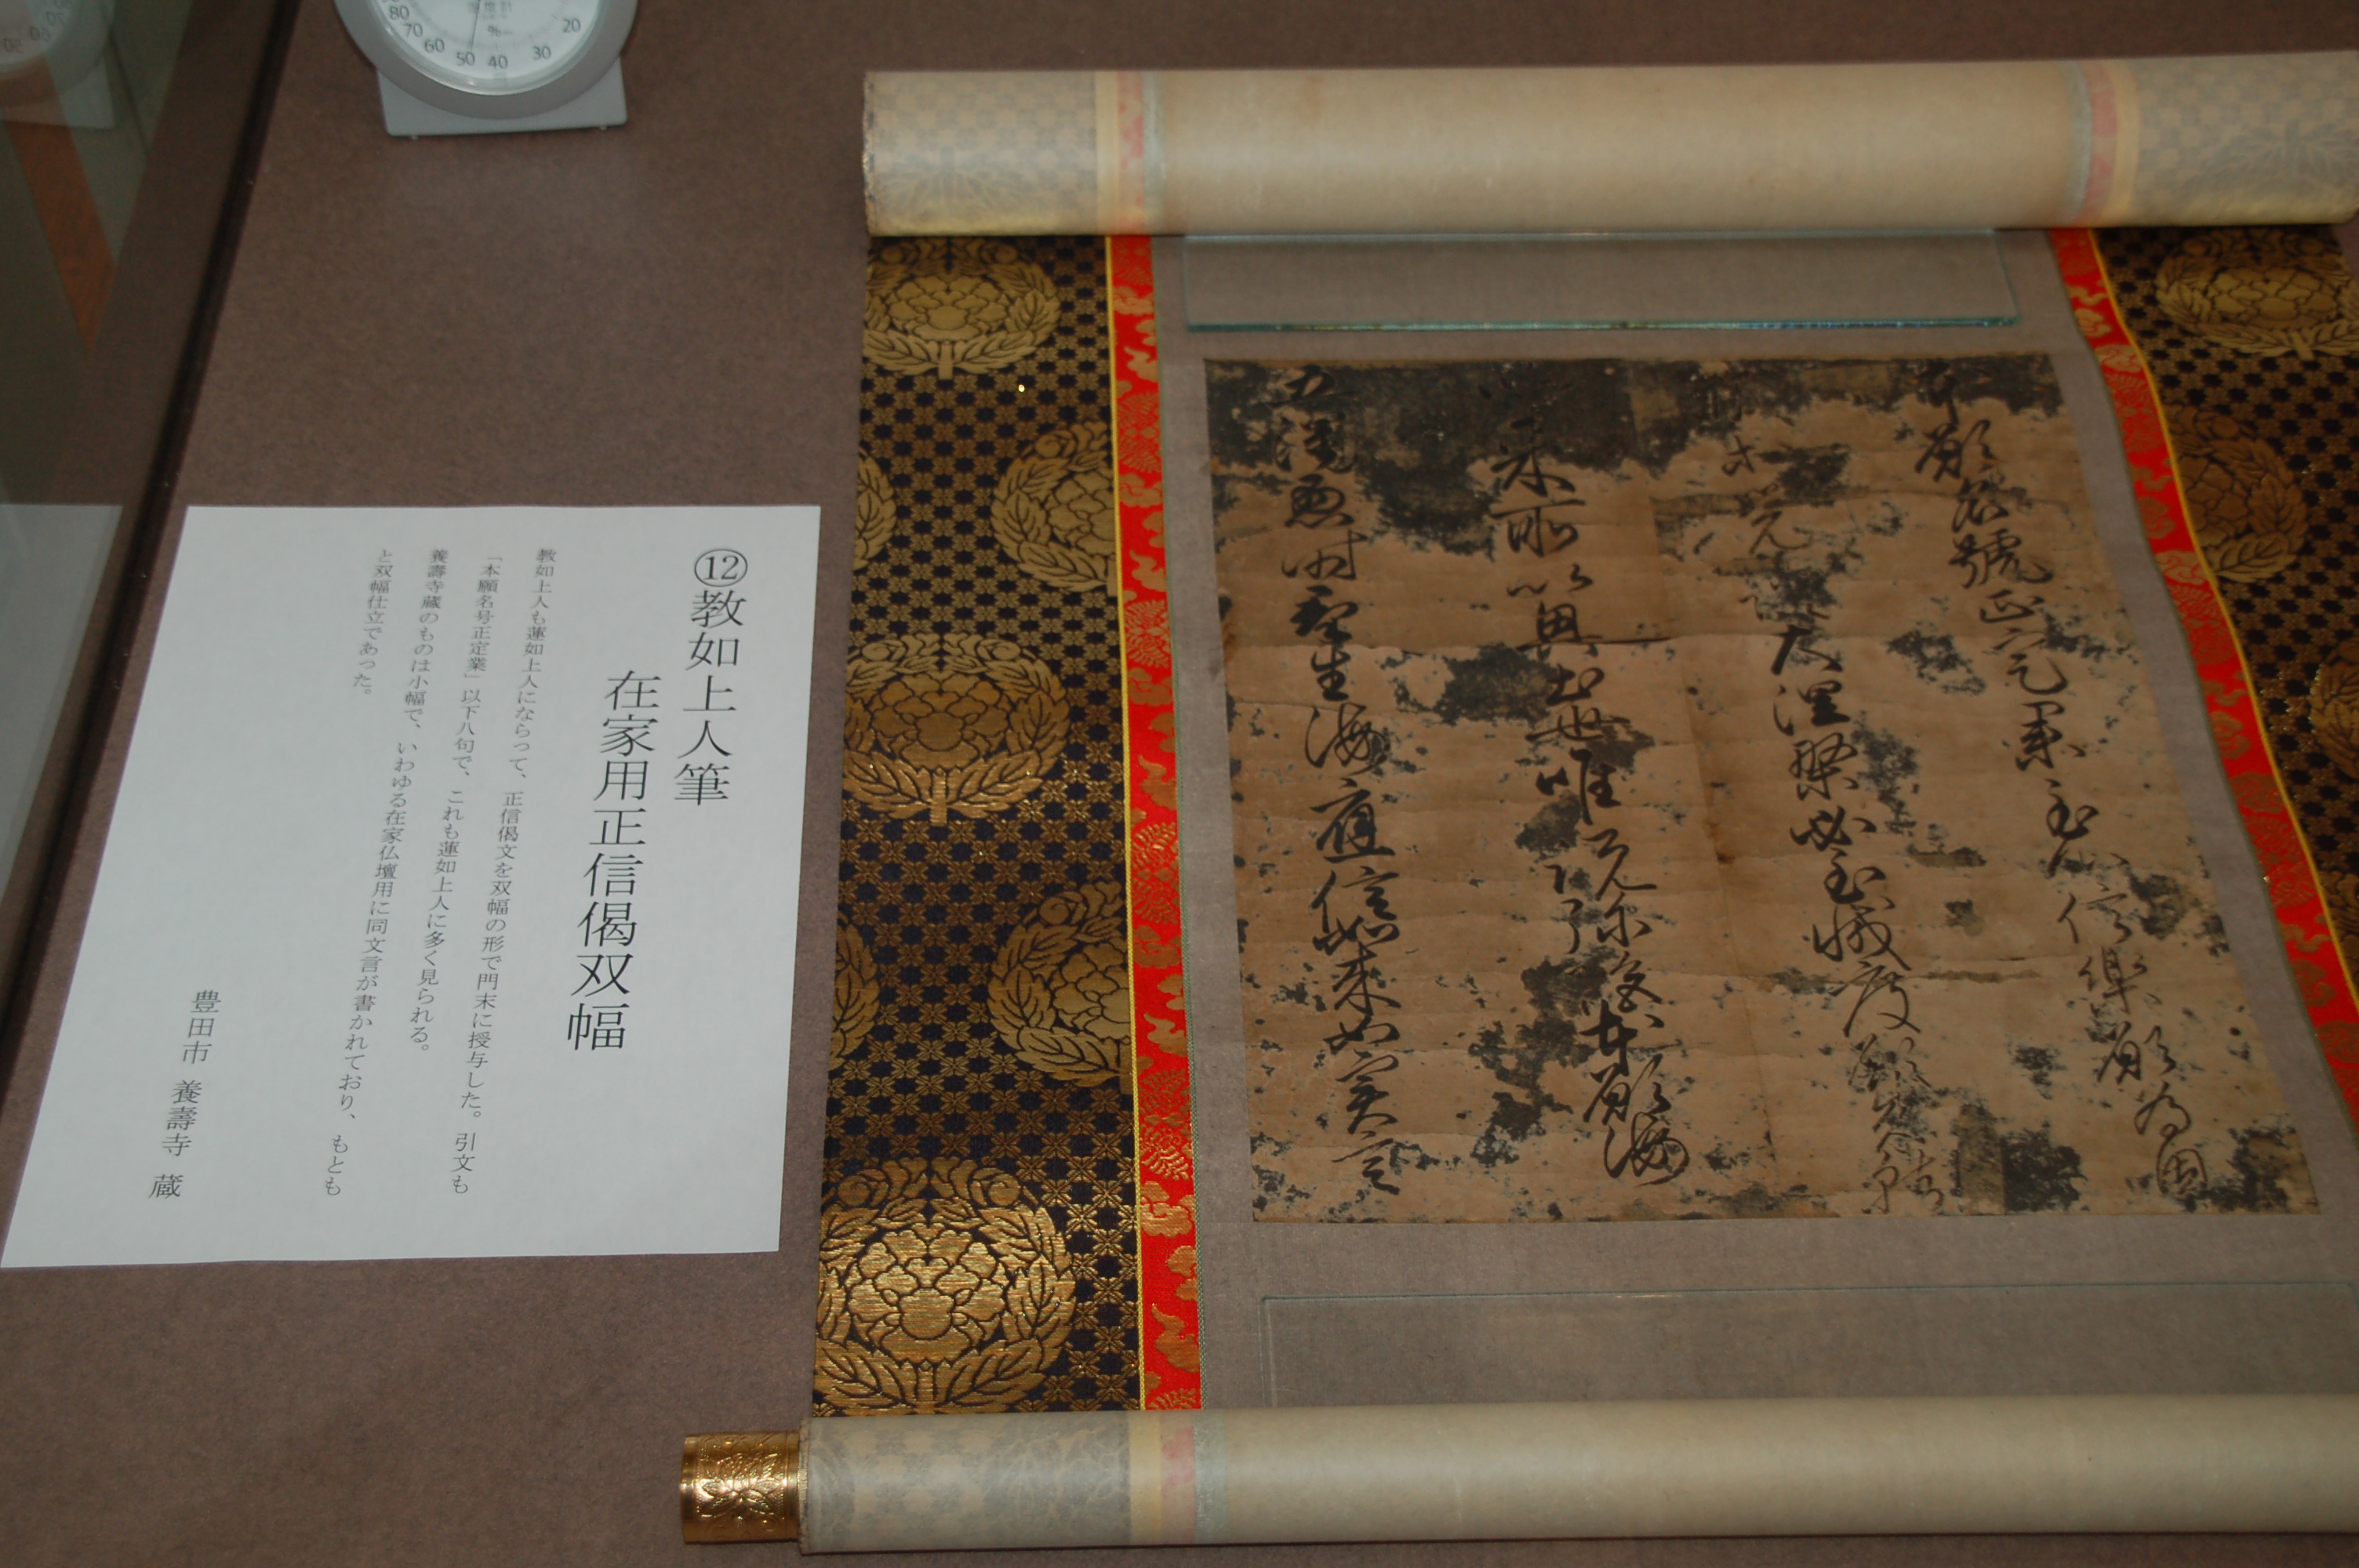 願名號正定業至心信樂願為因
等覚大涅槃必至滅度願成就
来所以興出世唯説弥陀本願海
五濁悪時群生海應信如来如実言
⑫教如上人筆
在家用正信偈双幅
教如上人も蓮如上人にならって、正信偈文を双幅の形で門末に授与した。引文も
「本願名号正定業」以下八句で、これも蓮如上人に多く見られる。
養壽寺蔵のものは小幅で、いわゆる在家仏壇用に同文言が書かれており、もとも
と双幅仕立であった。
豊田市 養壽寺 蔵
80 70 60 50 40 30 20
%